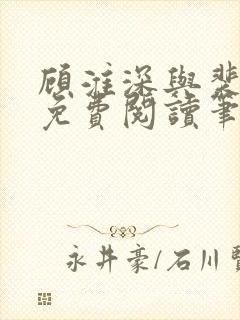 顾淮深與裴
免費閱讀筆
永井豪/石川賢